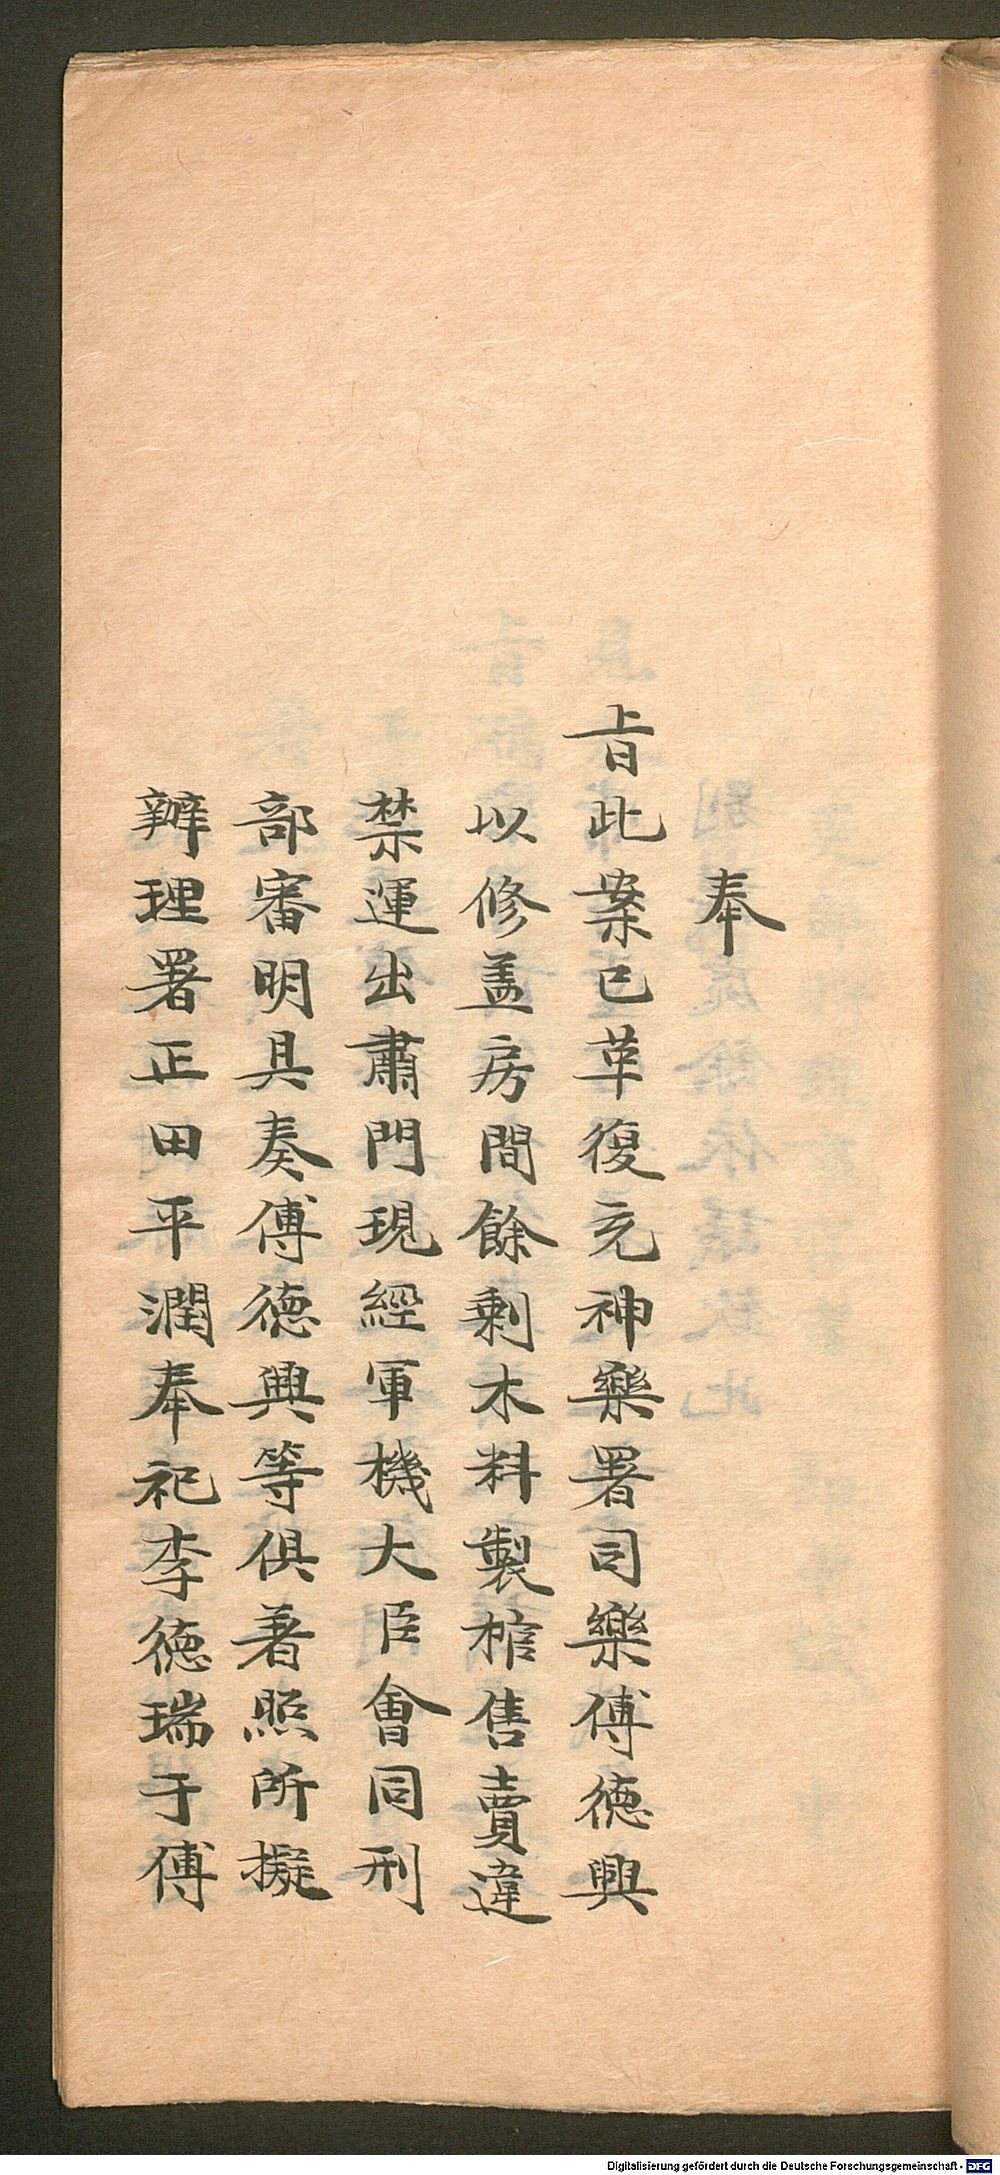 奉
旨此案已革復充神樂署司樂傅德興
以修盖房間餘剩木料製棺售賣違
禁運出肅門現經軍機大臣會同刑
部審明具奏傅德興等俱著照所擬
辦理署正田平潤奉祀李德瑞于傅
Digitalisierung gefördert durch die Deutsche Forschungsgemeinschaft - DFG